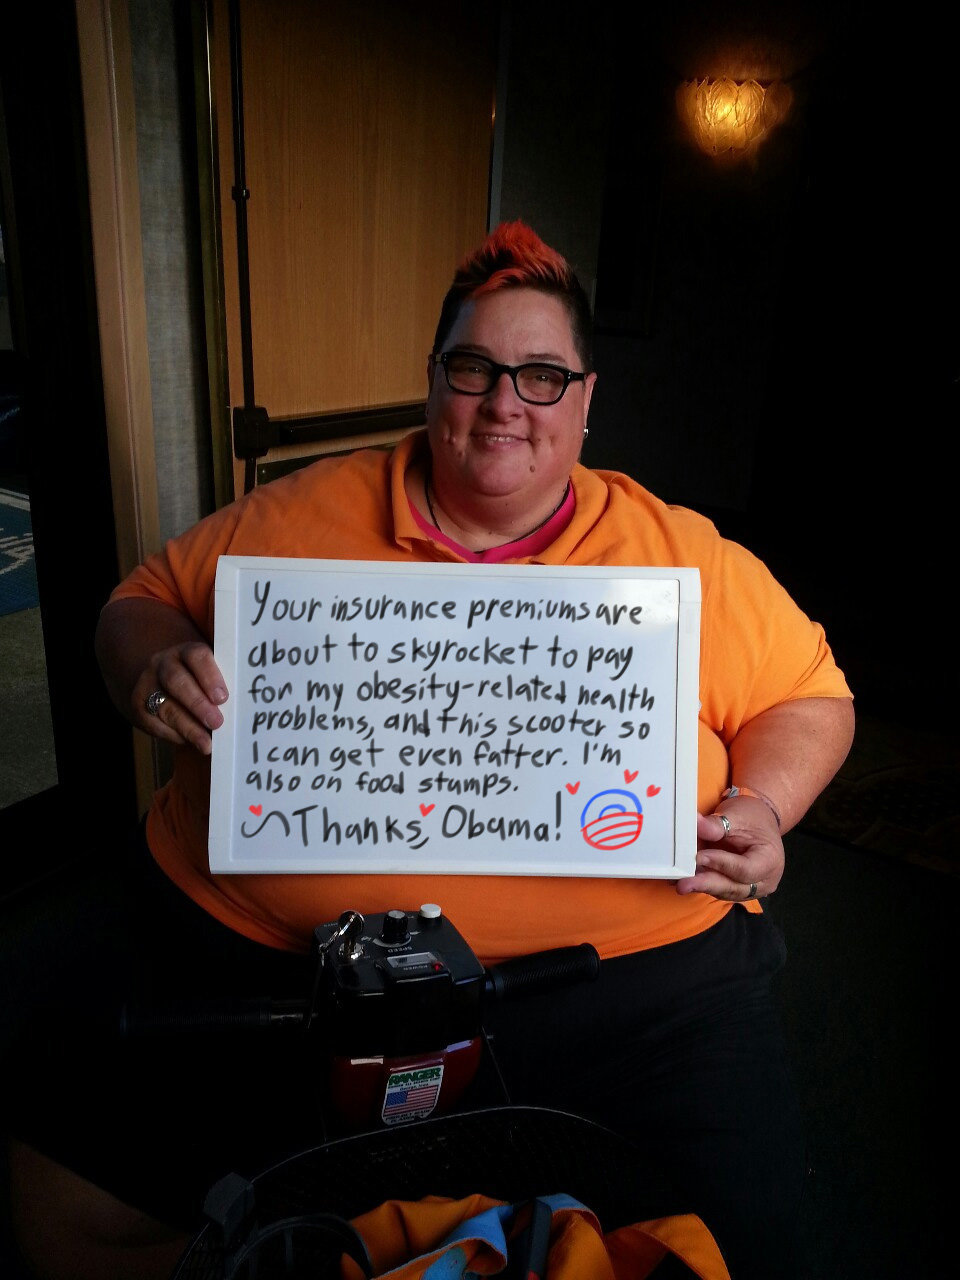 Your insurance premiums are
about to skyrocket to pay
for my obesity-related health
problems, and this scooter so
I can get even fatter. I'm
also on food stamps.
Thanks, Obama!
SPEED
POWER
RANGER